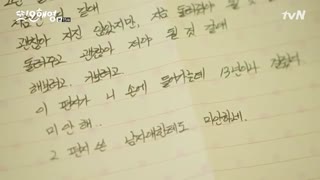 또!오해영
tvN
괜찮아 지진 않았지만, 지금
돌려주고 괜찮아 져야 될 것 같애
해보려고. 가보려고.
이 편지가 니 손에 돌아가는데 13년이나 걸렸어
미안해..
그 편지 쓴 남자애한테도 미안하네.